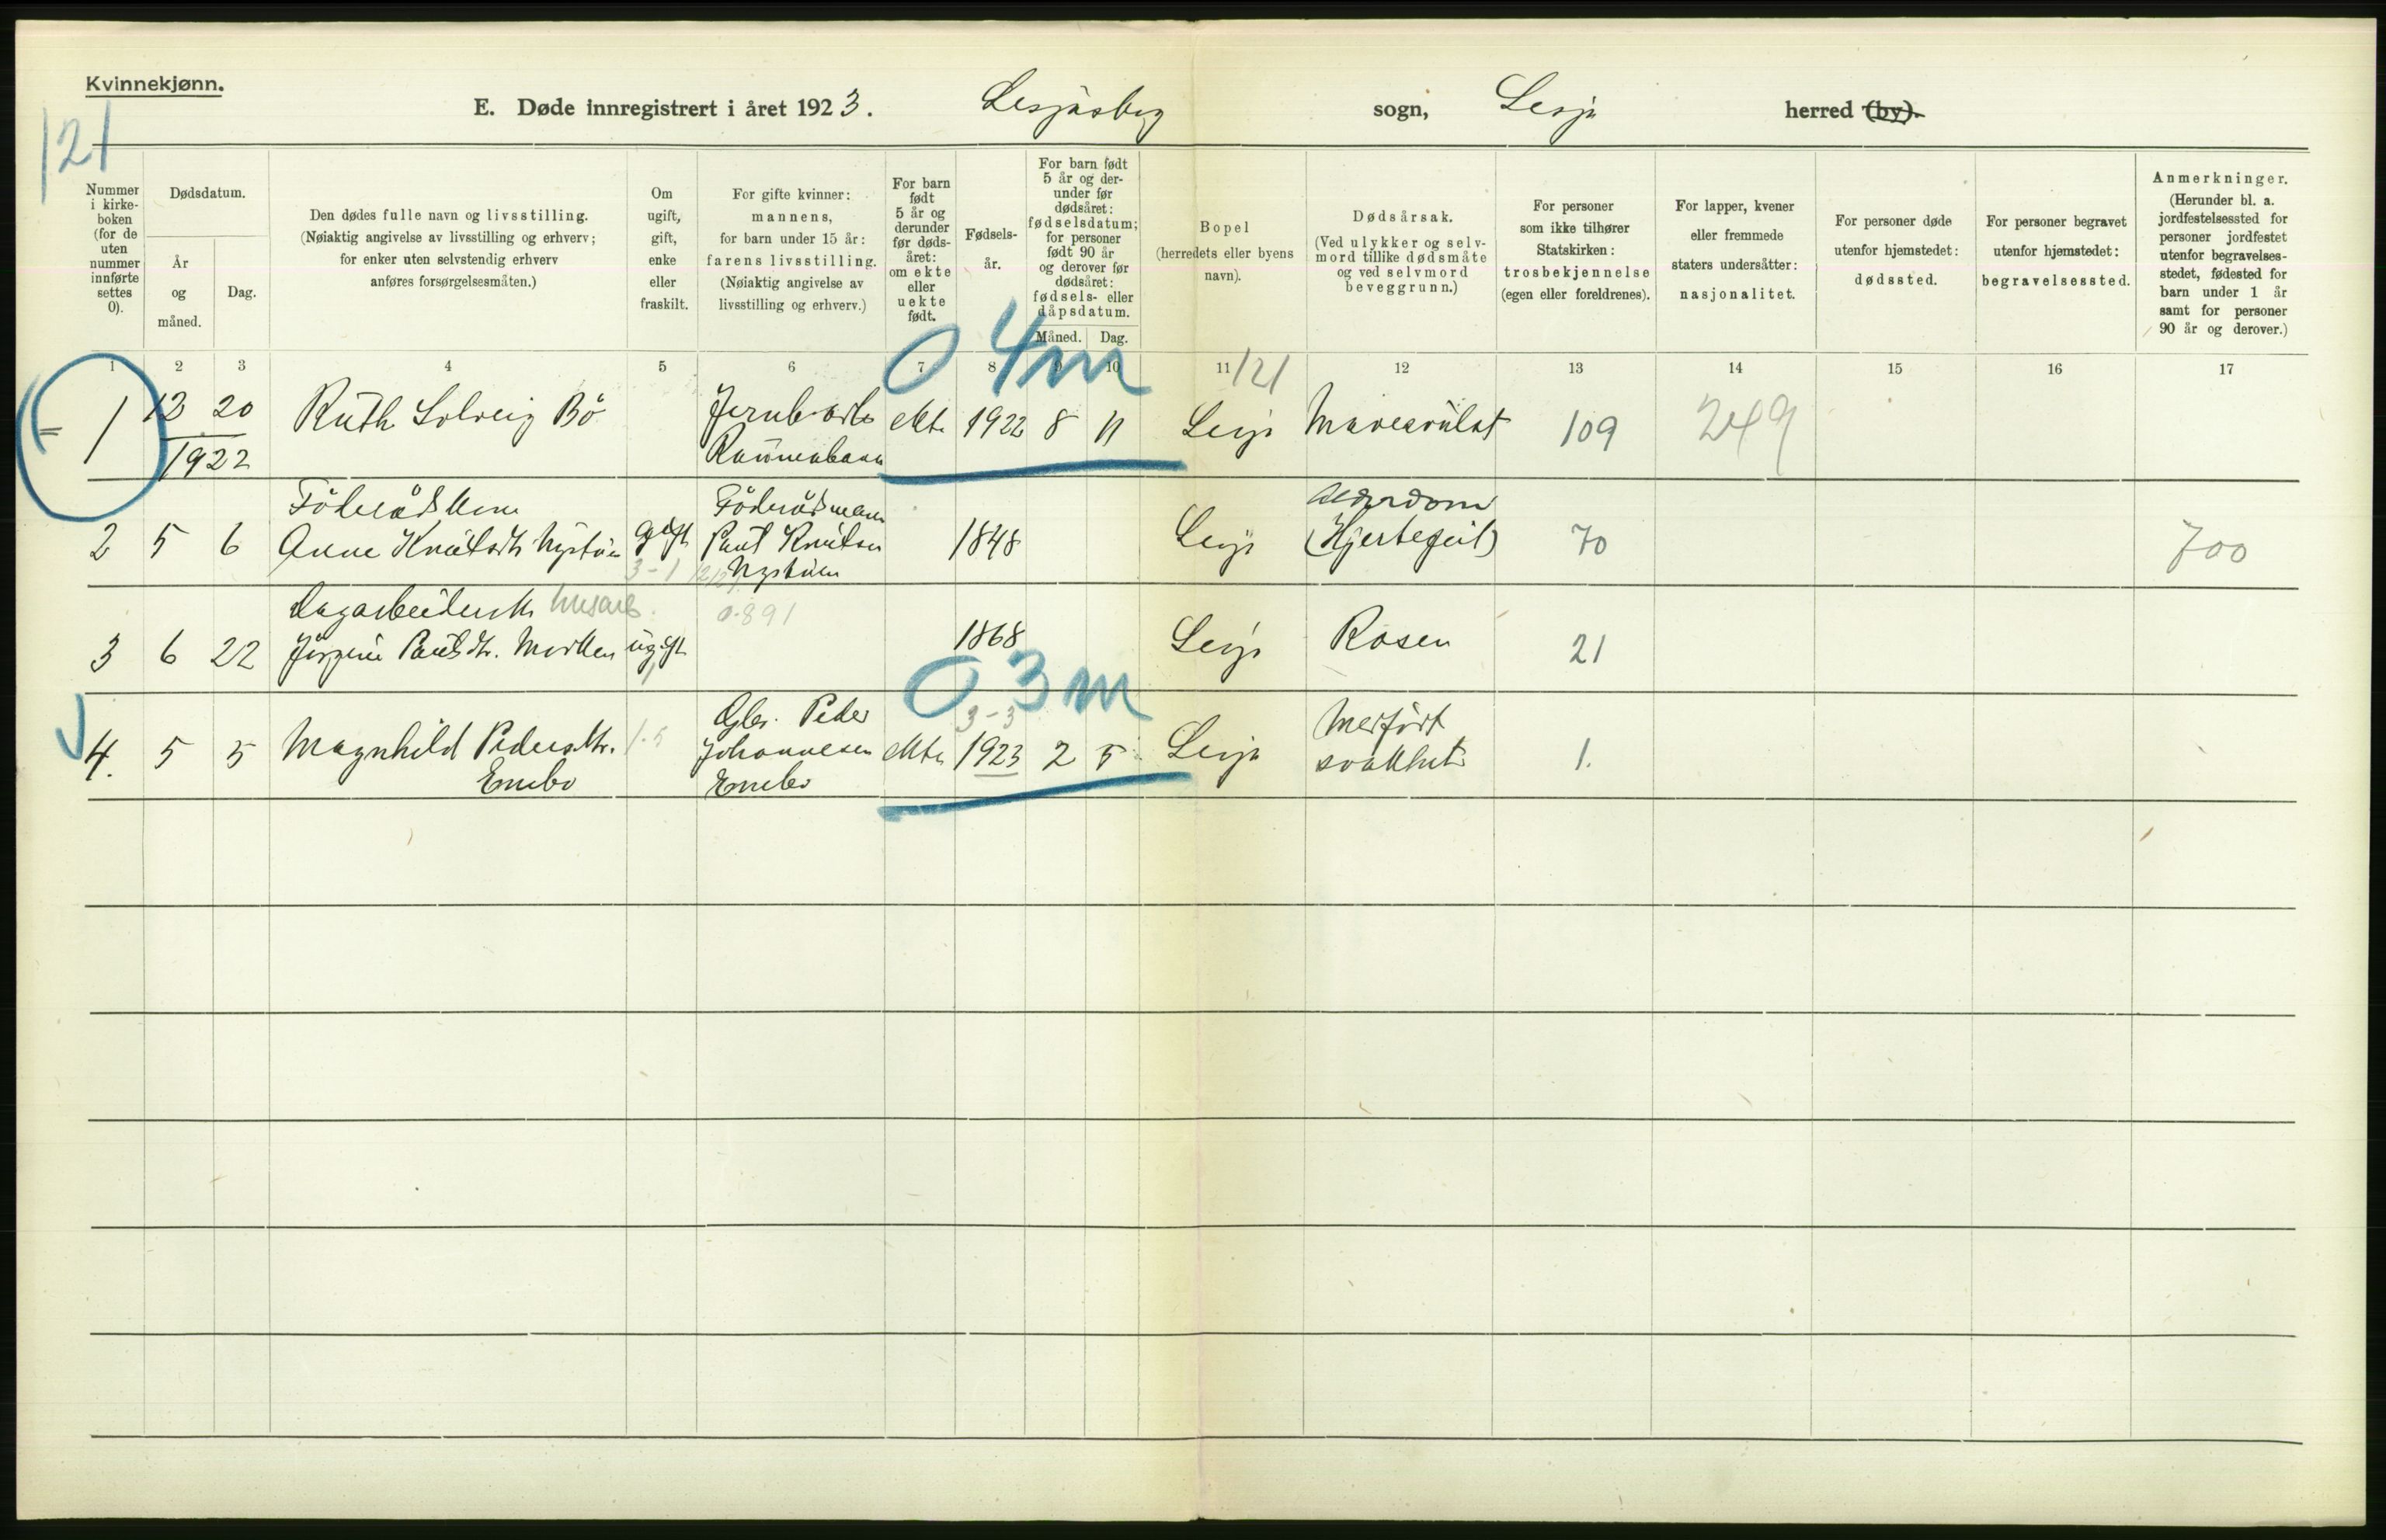 Kvinnekjønn.
E. Døde innregistrert i året 1923. Lesjaskog sogn, Lesja herred (by).
121
Nummer i kirke-boken (for de uten nummer innførte settes 0).
Dødsdatum.
År og måned.
Dag.
Den dødes fulle navn og livsstilling.
(Nøiaktig angivelse av livsstilling og erhverv;
for enker uten selvstendig erhverv
anføres forsørgelsesmåten.)
Om
ugift,
gift,
enke
eller
fraskilt.
For gifte kvinner:
mannens,
for barn under 15 år:
farens livsstilling.
(Nøiaktig angivelse av
livsstilling og erhverv.)
For barn
født
5 år og
derunder
før døds-
året:
om ekte
eller
uekte
født.
Fødsels-
år.
For barn født
5 år og der-
under før
dødsåret:
fødselsdatum;
for personer
født 90 år
og derover før
dødsåret:
fødsels- eller
dåpsdatum.
Måned. Dag.
Bopel
(herredets eller byens
navn).
Dødsårsak.
(Ved ulykker og selv-
mord tillike dødsmåte
og ved selvmord
beveggrunn.)
For personer
som ikke tilhører
Statskirken:
trosbekjennelse
(egen eller foreldrenes).
For lapper, kvener
eller fremmede
staters undersåtter:
nasjonalitet.
For personer døde
utenfor hjemstedet:
dødssted.
For personer begravet
utenfor hjemstedet:
begravelsessted.
Anmerkninger.
(Herunder bl. a.
jordfestelsessted for
personer jordfestet
utenfor begravelses-
stedet, fødested for
barn under 1 år
samt for personer
90 år og derover.)
1 2 3 4 5 6 7 8 9 10 11 12 13 14 15 16 17
0 4m
121
1 12 20 Ruth Solveig Bö ekte 1922 8 11 Lesja 109 249
1922 Raumabanen
Föderådskone Föderådsmann Alderdom
2 5 6 Anne Knutsdtr Nystuen gift Paul Knutsen 1848 Lesja (Hjertefeil) 70 700
3-1 Nystuen
Dagarbeiderske husarb. 0.891
3 6 22 Jörgine Paulsdtr. ugift 1868 Lesja Rosen 21
0 3m
3-3
Gbr. Peder Medfödt
4. 5 5 Magnhild Pedersdtr. 1.5 Johannesen ekte 1923 2 5 Lesja svakhet 1.
Enebo Enebo